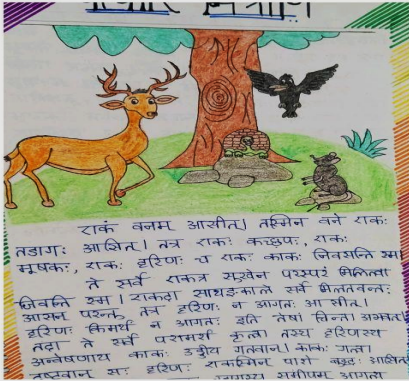 राकं वनम् आसीत्। तस्मिन वने राकः
तडागः आसित्। तत्र राकः कच्छपः, राकः
मूषकः, राकः हरिणः च राकः काकः निवसन्ति स्म।
ते सर्वे राकत्र सुखेन परस्परं मिलित्वा
निवन्ति स्म। राकदा सायङ्काले सर्वे मिलितवन्तः
आसन् परन्तु तत्र हरिणः न आगतः आसीत्।
हरिणः किमर्थं न आगतः इति तेषां चिन्ता अभवत्।
तदा ते सर्वे परामर्शं कृत्वा तस्य हरिणस्य
अन्वेषणाय काकः उड्डीय गतवान्। काकः गत्वा
दृष्टवान् सः हरिणः राकस्मिन् पाशे बद्धः आसित्
समीपम् आगत्य